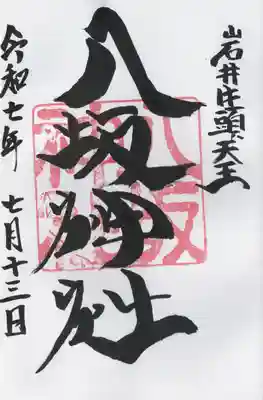 岩井牛頭天王
八坂神社
令和七年 七月十三日
八坂神社